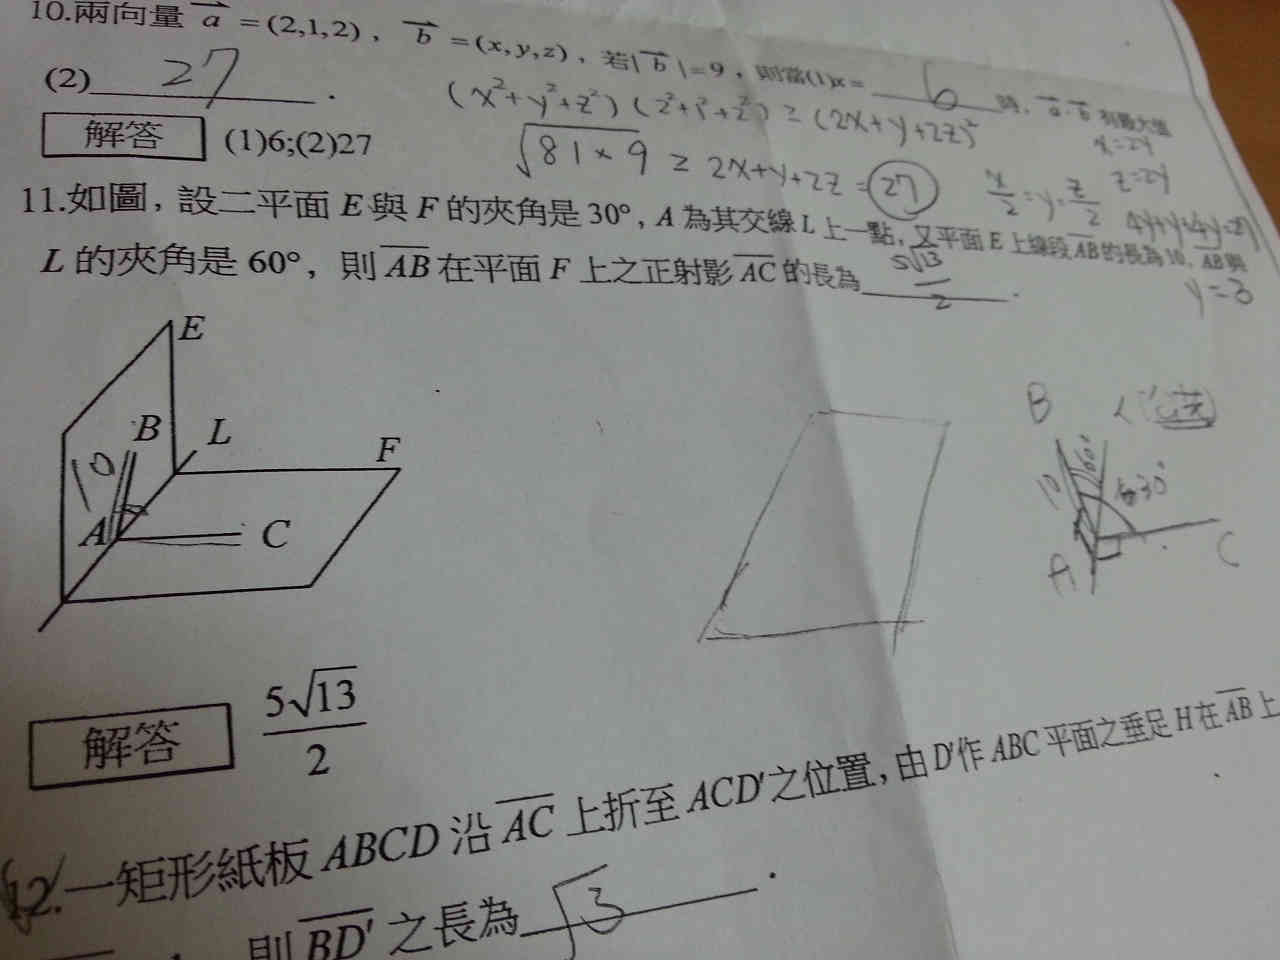 10.兩向量 a =(2,1,2)，b =(x,y,z)，若| b |=9，則當(1)x= 6 時，a·b 有最大值
(2) 27 .
(x²+y²+z²)(2²+1²+2²) ≥ (2x+y+2z)²
√81×9 ≥ 2x+y+2z = 27
x/2 = y = z/2
x=2y
z=2y
4y+y+4y=27
y=3
解答 (1)6;(2)27
11.如圖，設二平面 E 與 F 的夾角是 30°，A 為其交線 L 上一點，又平面 E 上線段 AB 的長為 10，AB 與
L 的夾角是 60°，則 AB 在平面 F 上之正射影 AC 的長為 5√13/2 .
E
B
L
F
10
A
C
B
10
60°
30°
A
C
解答 5√13/2
12.一矩形紙板 ABCD 沿 AC 上折至 ACD' 之位置，由 D' 作 ABC 平面之垂足 H 在 AB 上
則 BD' 之長為 √3 .